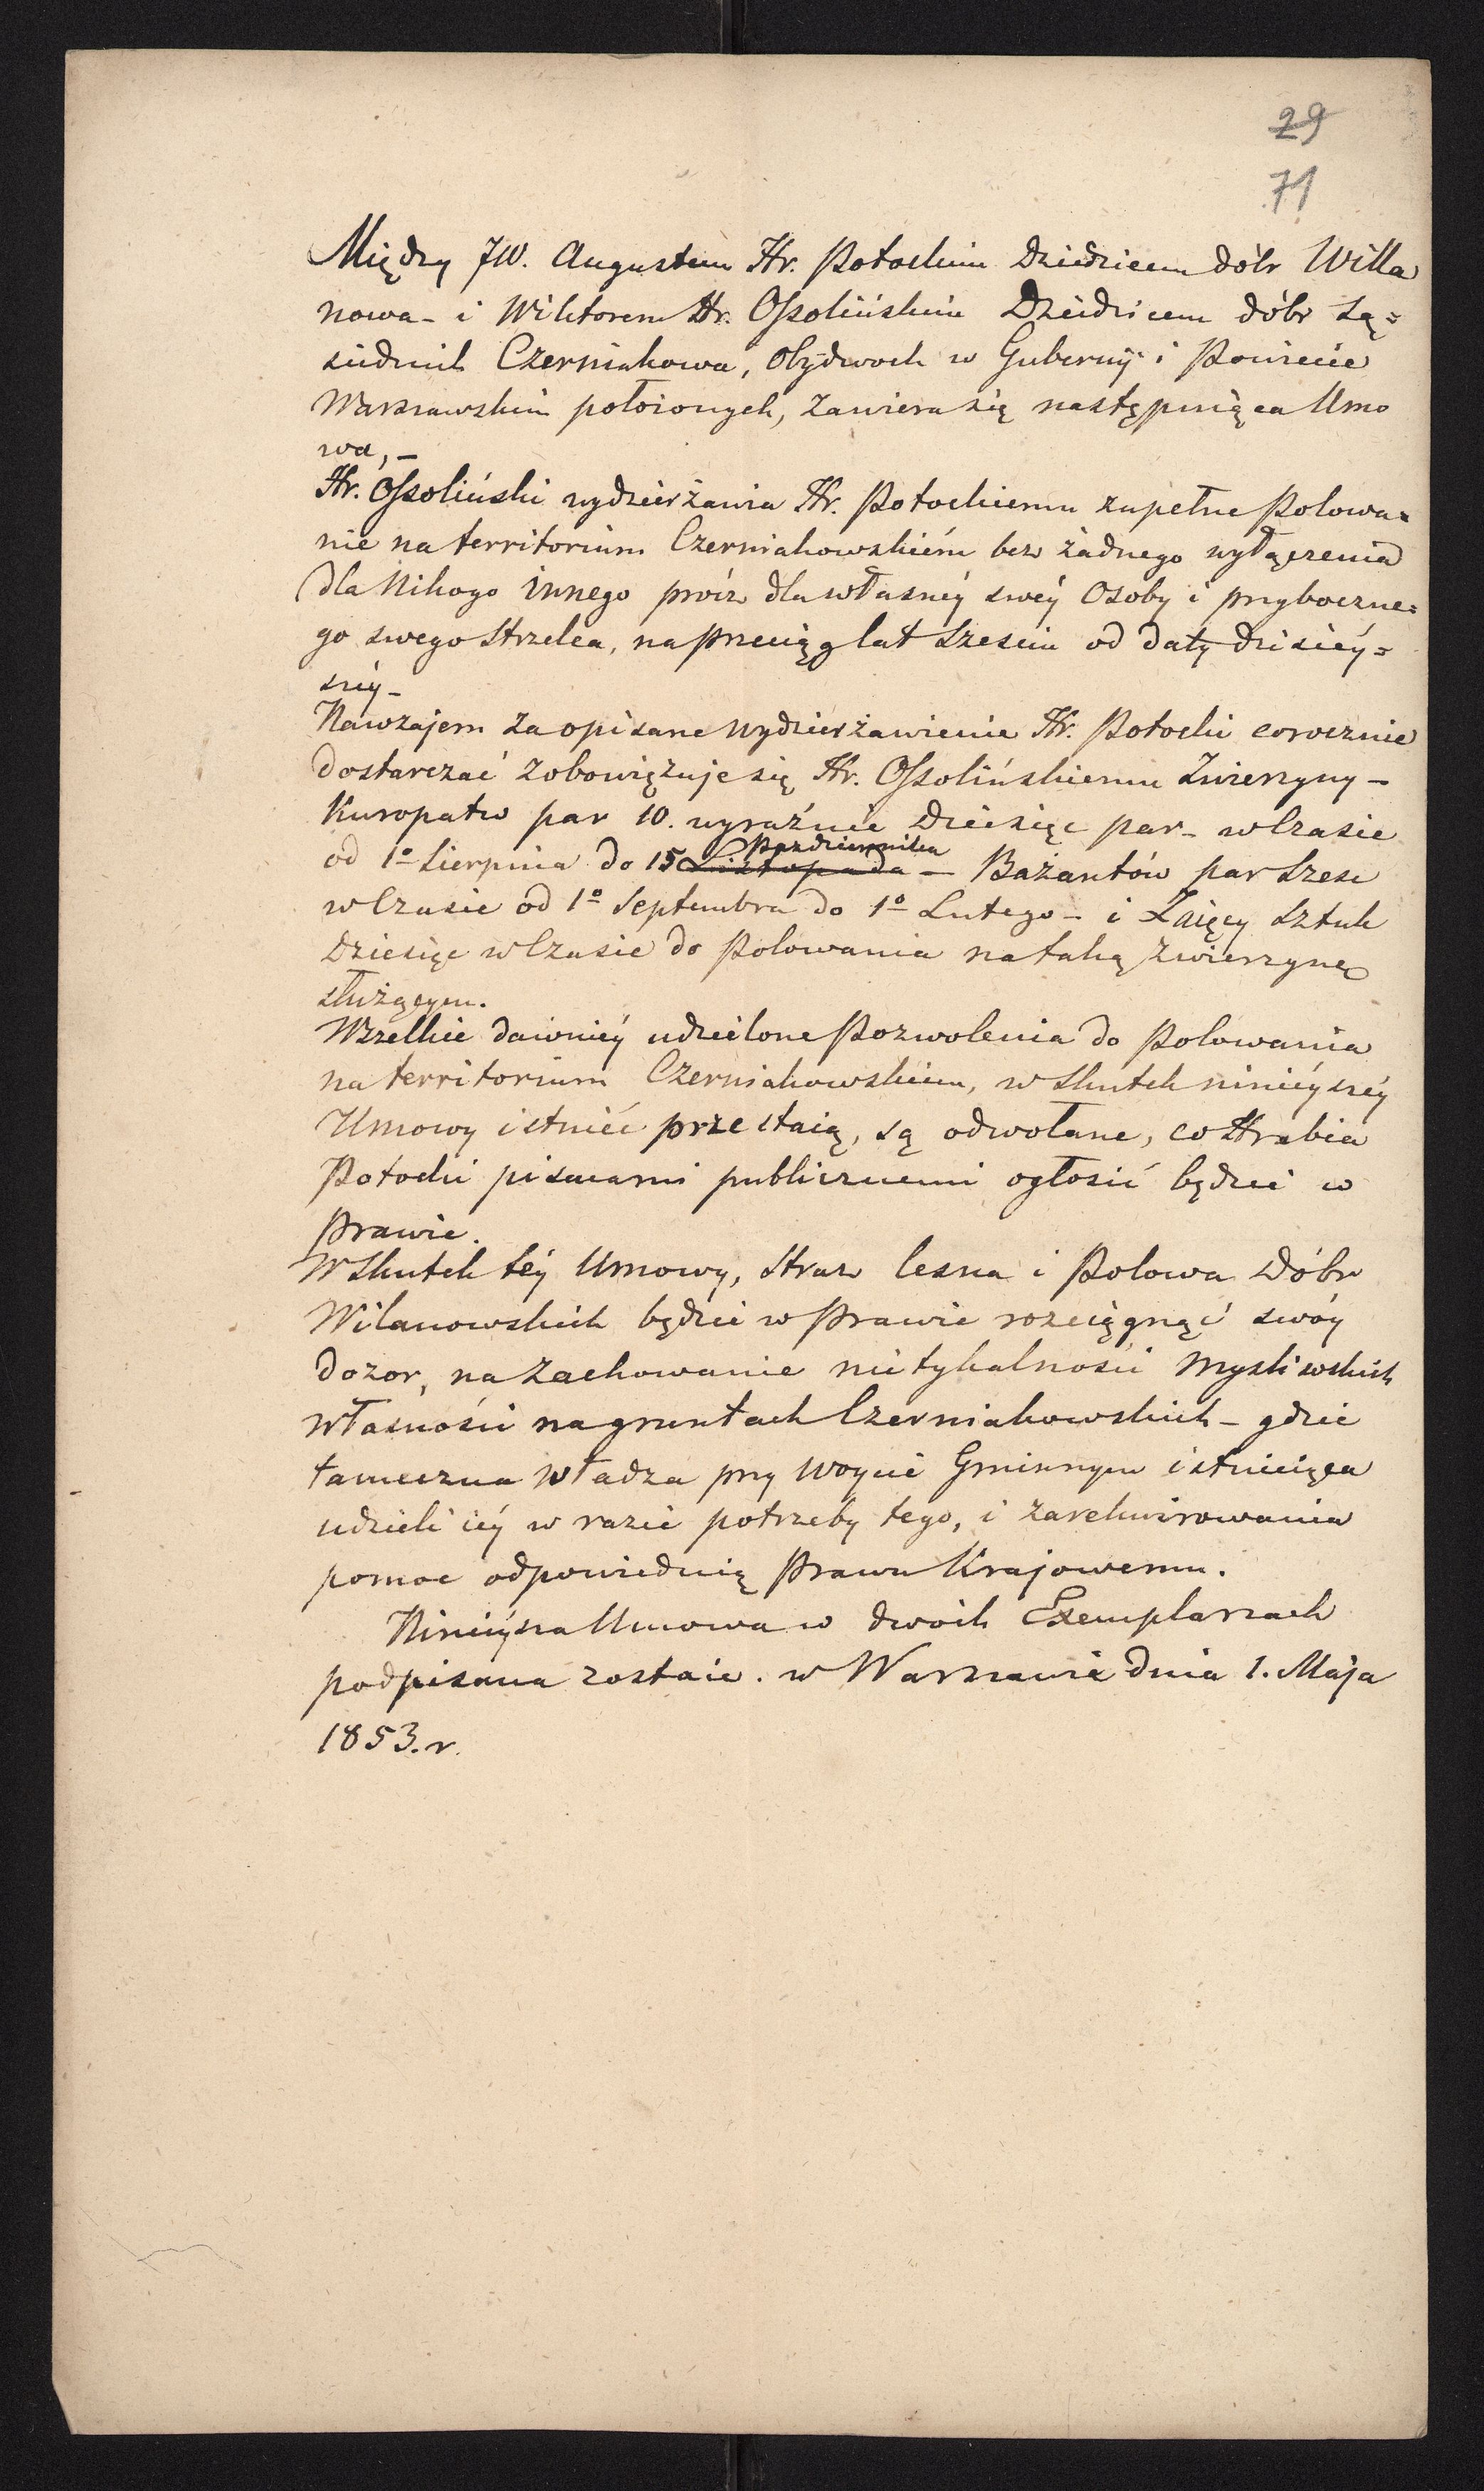 29
71
Między JW. Augustem Hr. Potockim Dziedzicem dóbr Willa
nowa - i Wiktorem Hr. Ossolińskim Dziedzicem dóbr są=
siednich Czerniakowa, obydwoch w Gubernij i Powiecie
Warszawskim położonych, zawiera się następuiąca Umo
wa, -
Hr. Ossoliński wydzierżawia Hr. Potockiemu zupełne Polowa=
nie na territorium Czerniakowskiém bez żadnego wyłączenia
dla Nikogo innego prócz dla własnéy swéy Osoby i przyboczne=
go swego Strzelca, na Przeciąg lat Sześciu od daty dzisiéy=
széy -
Nawzajem za opisane wydzierżawienie Hr. Potocki corocznie
dostarczać zobowięzuje się Hr. Ossolińskiemu Zwierzyny -
Kuropatw par 10. wyraźnie Dziesięc par - w Czasie
od 1º Sierpnia do 15 Listopada Pazdziernika - Bażantów par Szesc
w Czasie od 1º Septembra do 1º Lutego - i Zaięcy Sztuk
Dziesięc w Czasie do Polowania na taką zwierzynę
służącym.
Wszelkie dawniéy udzielone Pozwolenia do Polowania
na territorium Czerniakowskiem, w skutek niniéyszéy
Umowy istniéć przestaią, są odwołane, co Hrabia
Potocki pismami publicznemi ogłosić będzie w
Prawie.
W Skutek téy Umowy, Straz lesna i Polowa Dóbr
Wilanowskich będzie w Prawie rozciągnąć swóy
dozor, na Zachowanie nietykalności Mysliwskich
własności na gruntach Czerniakowskich - gdzie
tameczna władza przy Woycie Gminnym istnieiąca
udzieli iéy w razie potrzeby tego, i zarekwirowania
pomoc odpowiednią Prawu Krajowemu.
Niniéysza Umowa w dwóch Exemplarzach
podpisana zostaie. w Warszawie dnia 1. Maja
1853. r.